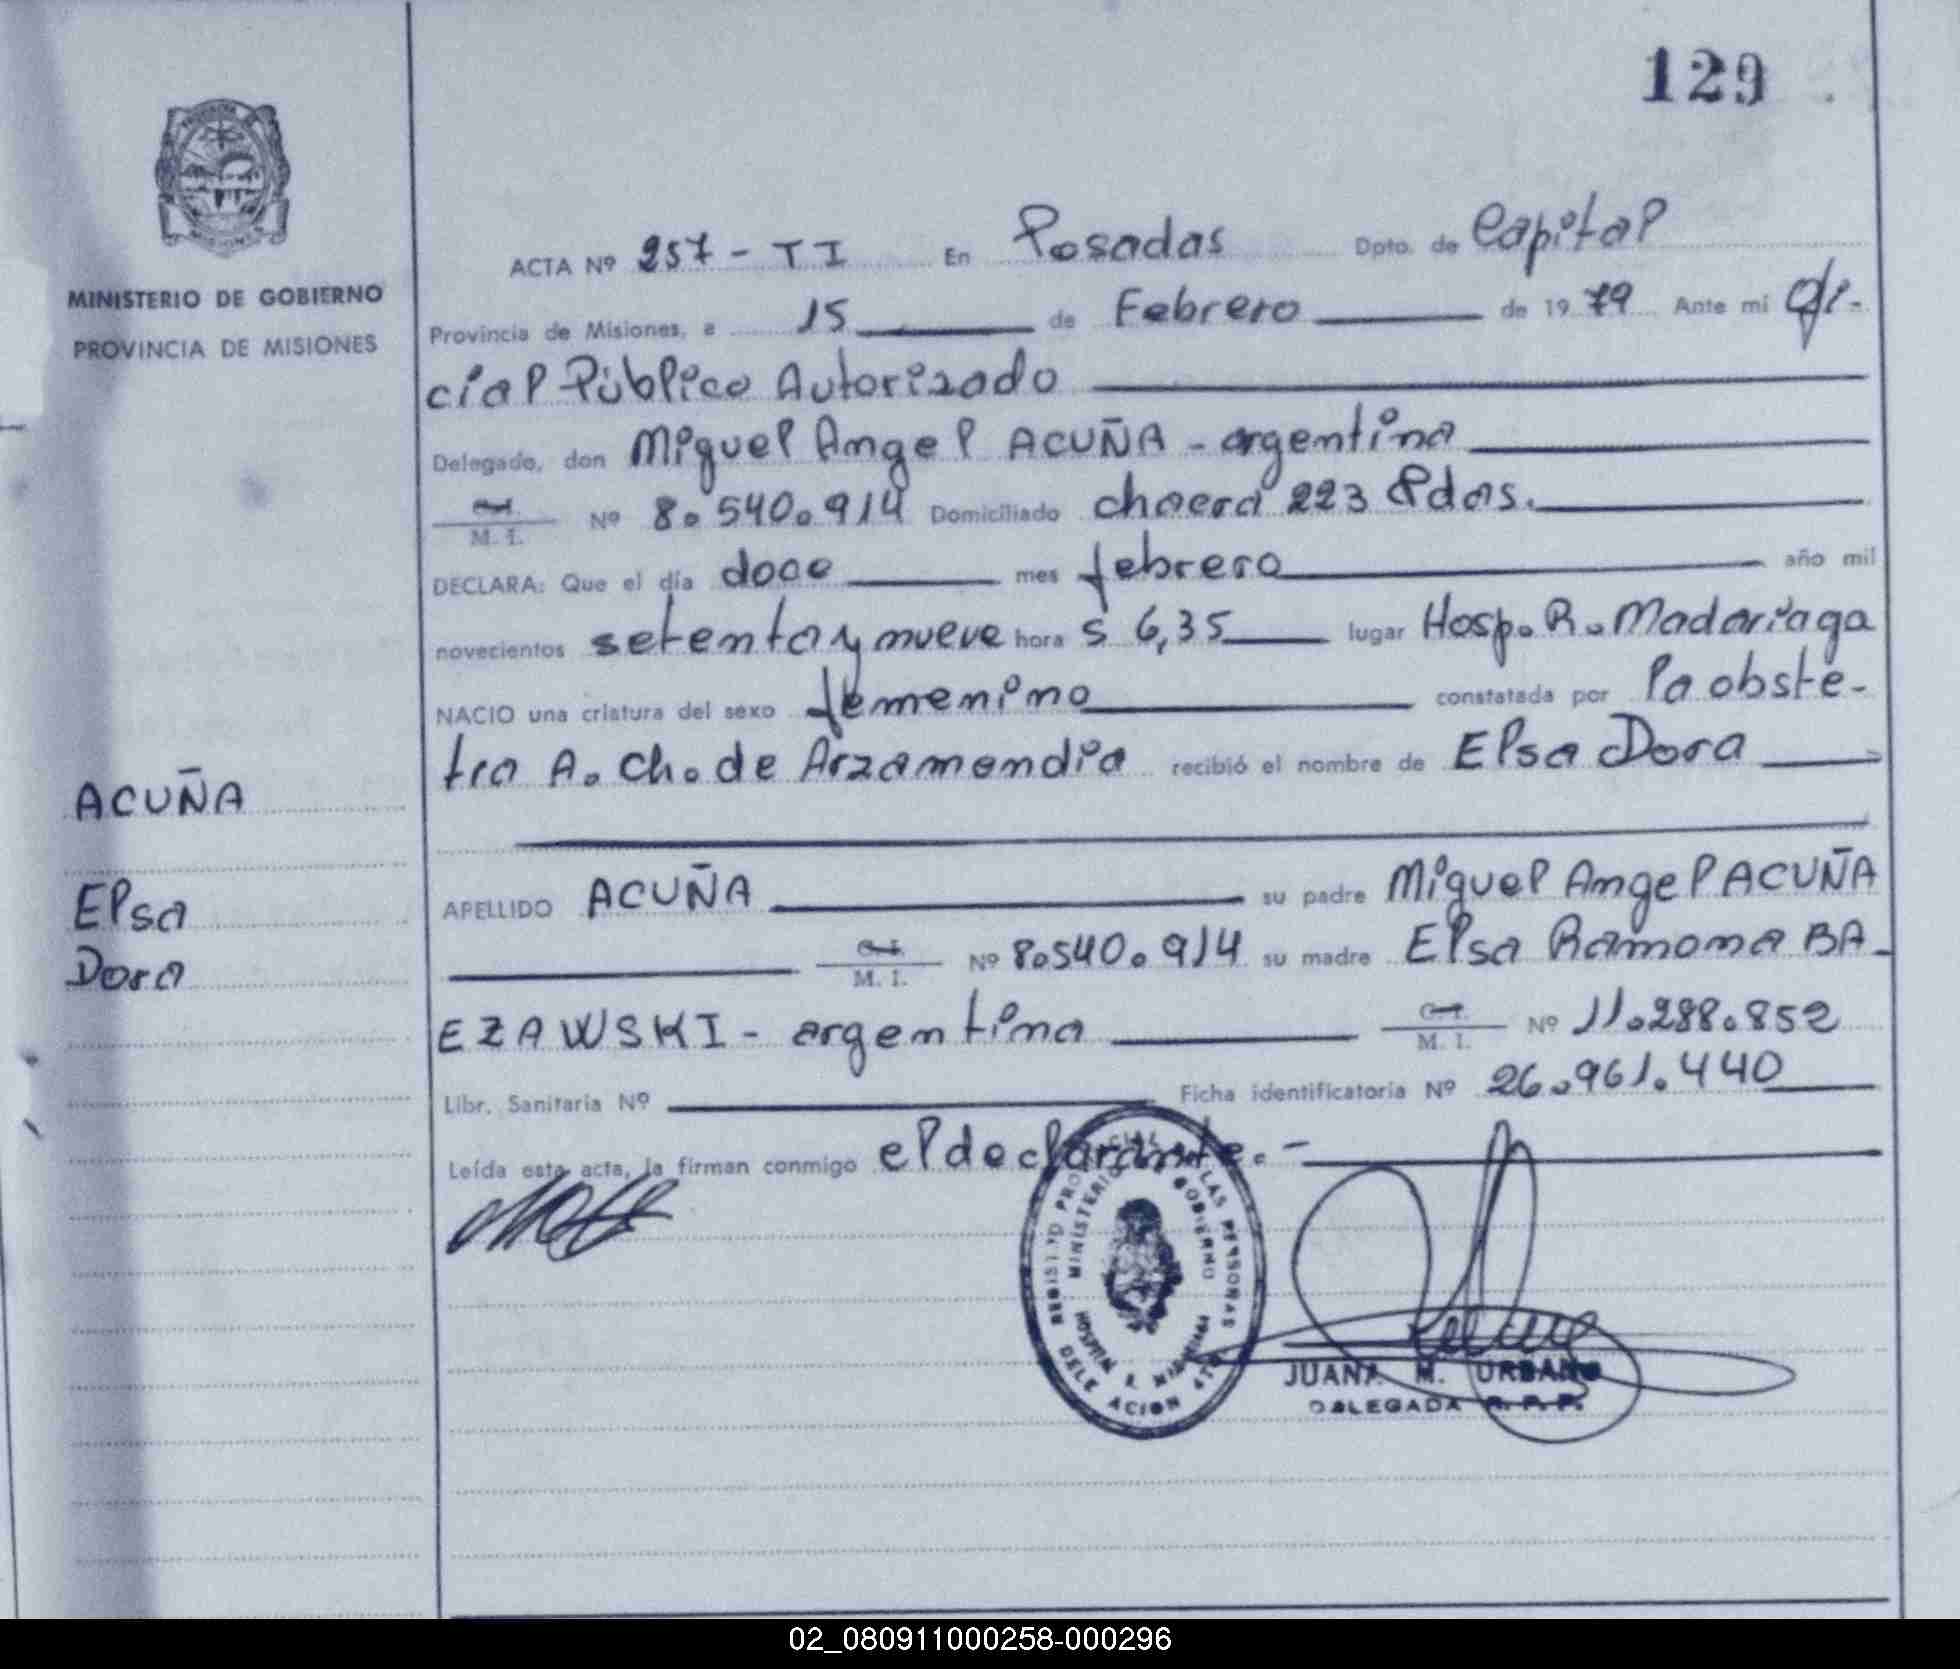 129
MINISTERIO DE GOBIERNO
PROVINCIA DE MISIONES
ACTA Nº 257 - T I En Posadas Dpto. de Capital
Provincia de Misiones, a 15 de Febrero de 1979 Ante mi Ofi-
cial Público Autorizado
Delegado, don Miguel Angel ACUÑA - argentina
C.I. M. I. Nº 8.540.914 Domiciliado chacra 223 Pdas.
DECLARA: Que el día doce mes febrero año mil
novecientos setenta y nueve hora s 6,35 lugar Hosp. R. Madariaga
NACIO una criatura del sexo femenino constatada por la obste-
tra A. Ch. de Arzamendia recibió el nombre de Elsa Dora
ACUÑA
Elsa
Dora
APELLIDO ACUÑA su padre Miguel Angel ACUÑA
C.I. M. I. Nº 8.540.914 su madre Elsa Ramona BA-
EZAWSKI - argentina C.I. M. I. Nº 11.288.852
Libr. Sanitaria Nº Ficha identificatoria Nº 26.961.440
Leída esta acta, la firman conmigo el declarante. -
REGISTRO PROVINCIAL DE LAS PERSONAS
MINISTERIO DE GOBIERNO
HOSPITAL R. MADARIAGA
DELEGACION 4TA
JUANA M. URBANO
DELEGADA R. P. P.
02_080911000258-000296